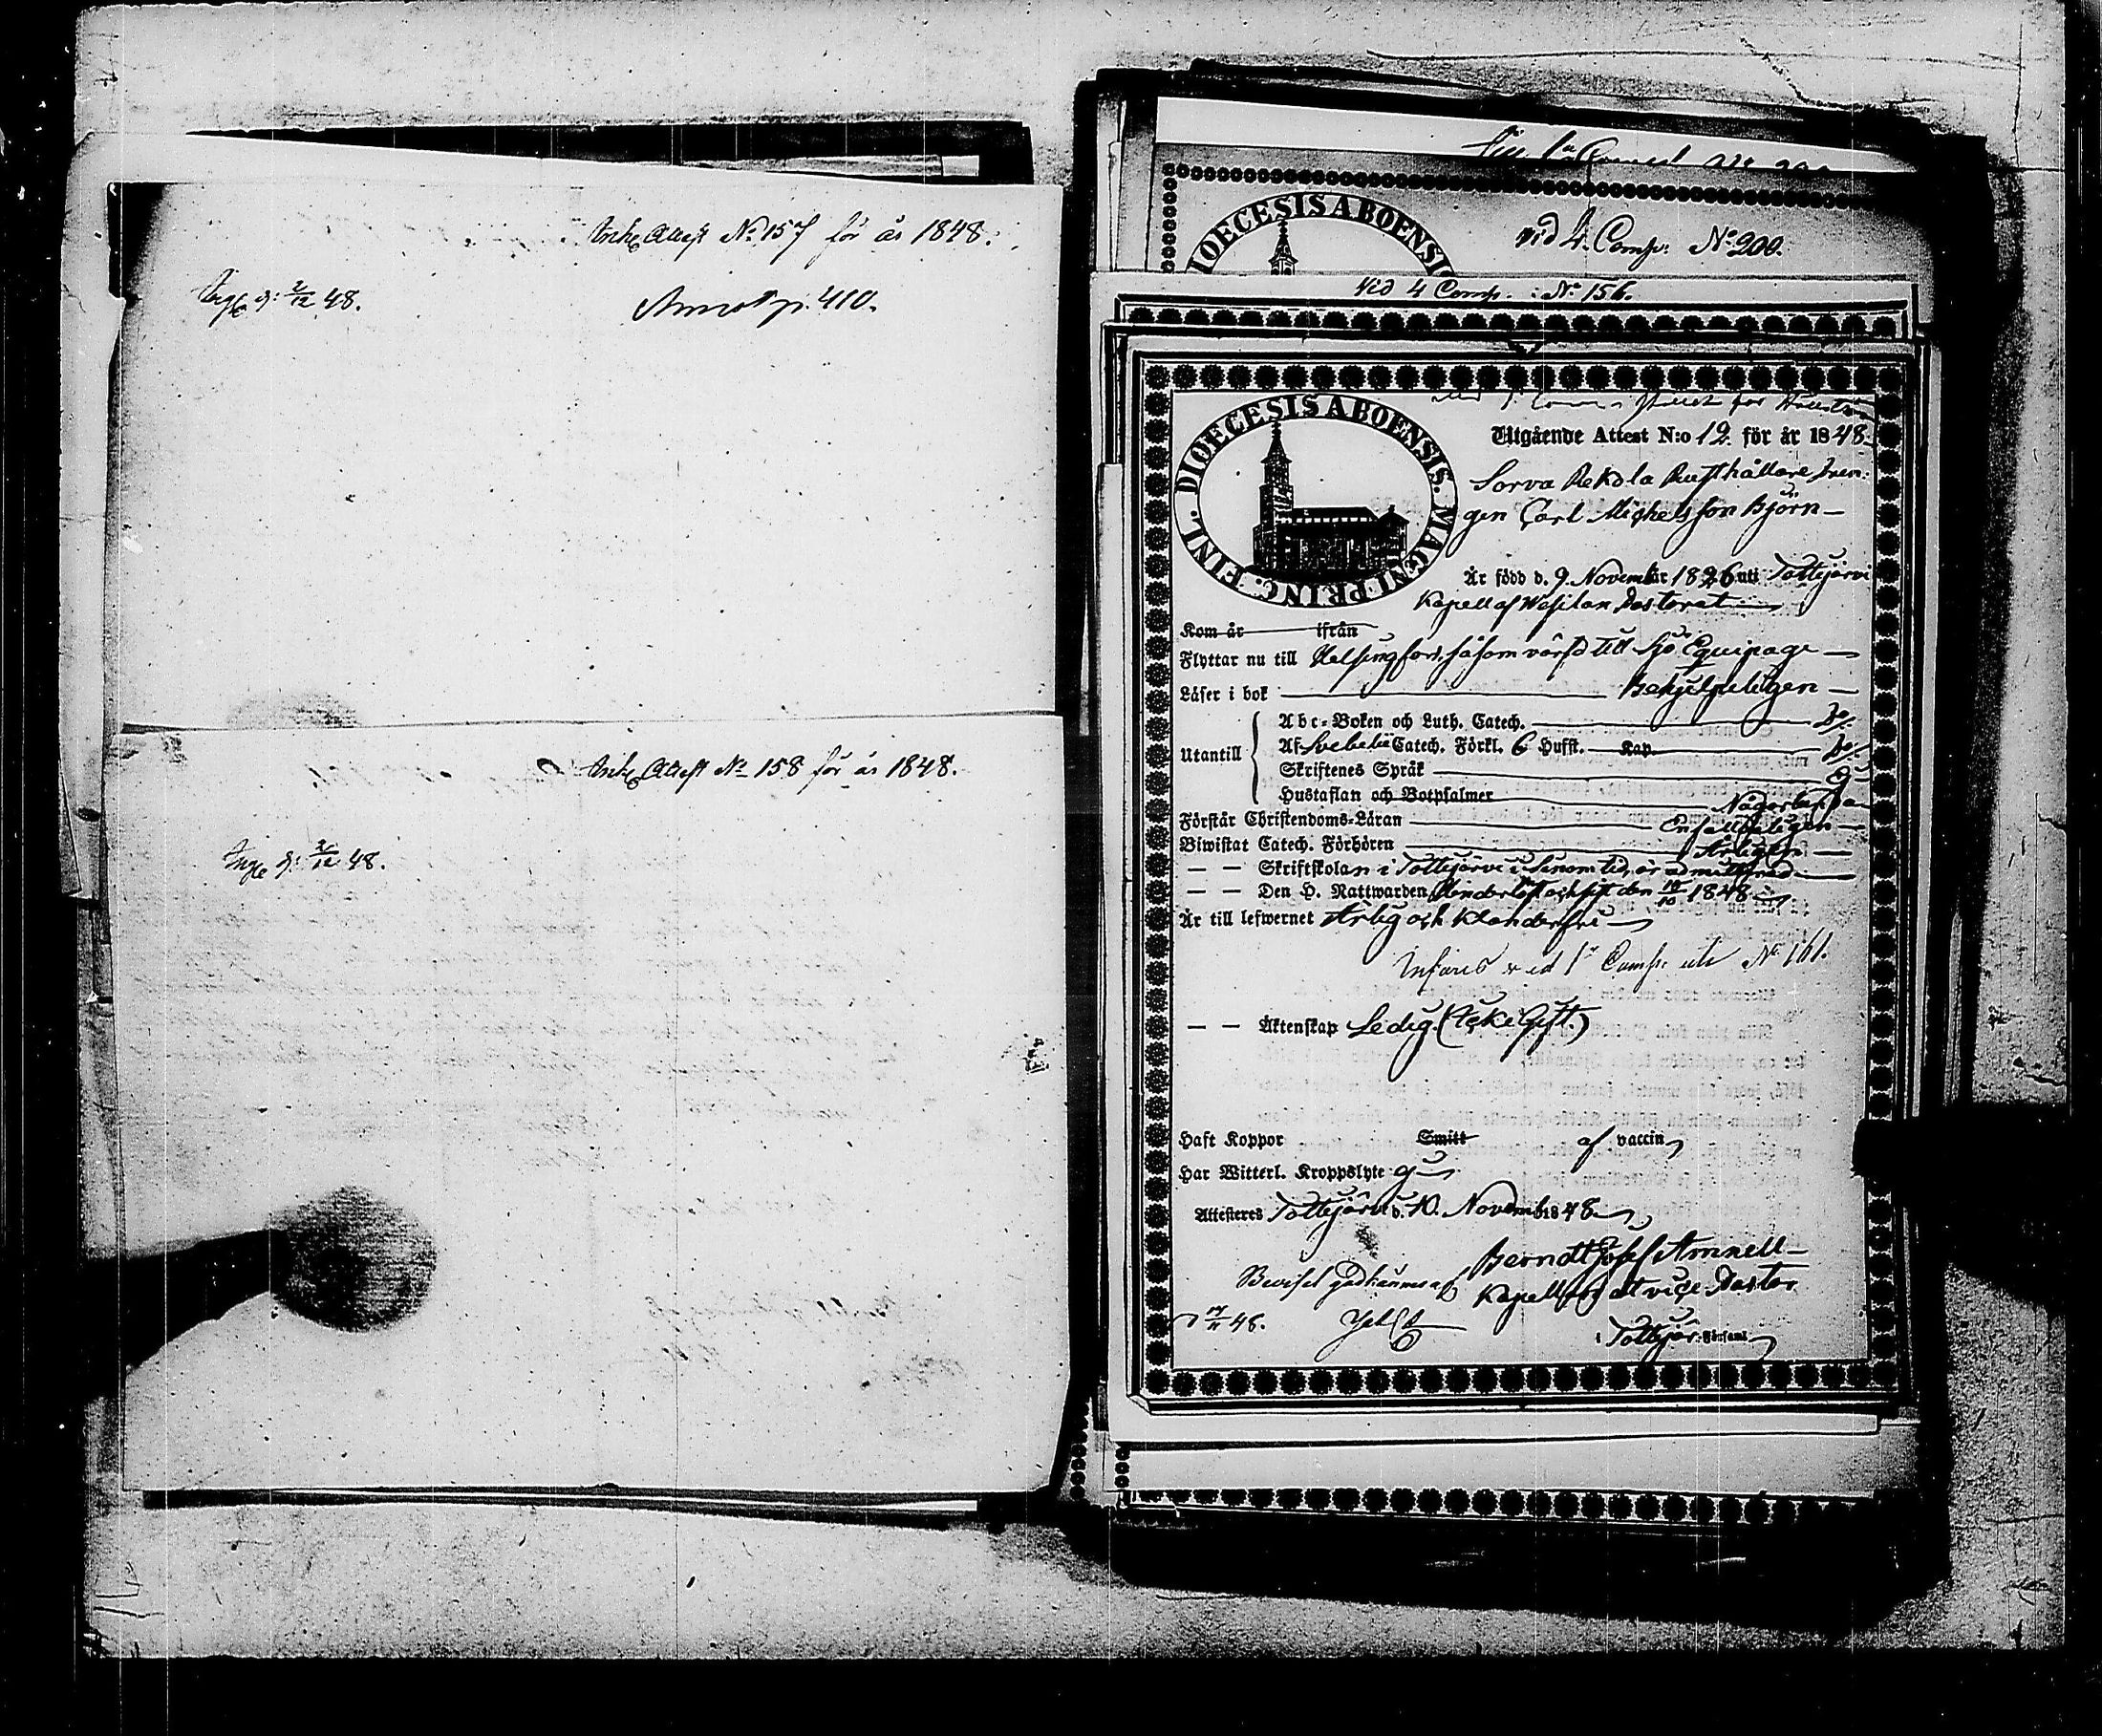 Attest No 157 för år 1848.
d: 2/12 48.
p. 410.
Attest No 158 för år 1848.
d: 2/12 48.
DIOECESIS ABOENSIS
vid 4. Comp: No 200.
Vid 4 Comp. No 156.
DIOECESIS ABOENSIS. MAGNI PRINC. FINL.
Utgående Attest N:o 12. för år 1848
Sorva Rekola Rusthållare Drän-
gen Carl Michelsson Björn
Är född d. 9. November 1826 uti Tottijärvi
Kapell af Wesilax Pastorat
Kom år ifrån
Flyttar nu till Helsingfors, såsom värfd till Sjö Equipage
Läser i bok Behjelpeligen
Utantill
Abc-Boken och Luth. Catech. do
Af Svebelii Catech. Förkl. 6 Hufst. Kap. do
Skriftenes Språk
Hustaflan och Botpsalmer
Förstår Christendoms-Läran Enfalldeligen
Biwistat Catech. Förhören Årligen
— — Skriftskolan i Tottijärvi i sinom tid, är admitterad
— — Den H. Nattwarden sist den 15/10 1848
Är till lefwernet Ärlig och Klanderfri
Införes vid 1a Comp: No 161.
— — Äktenskap Ledig (Icke Gift.)
Haft Koppor Smitt af vaccin
Har Witterl. Kroppslyte
Attesteres Tottijärvi d. 10. Novemb. 1848
Berndt Josef Amnell
Beviset godkännes af Kapellan at vice Pastor
d 17/11 48.
i Tottijär. Församl